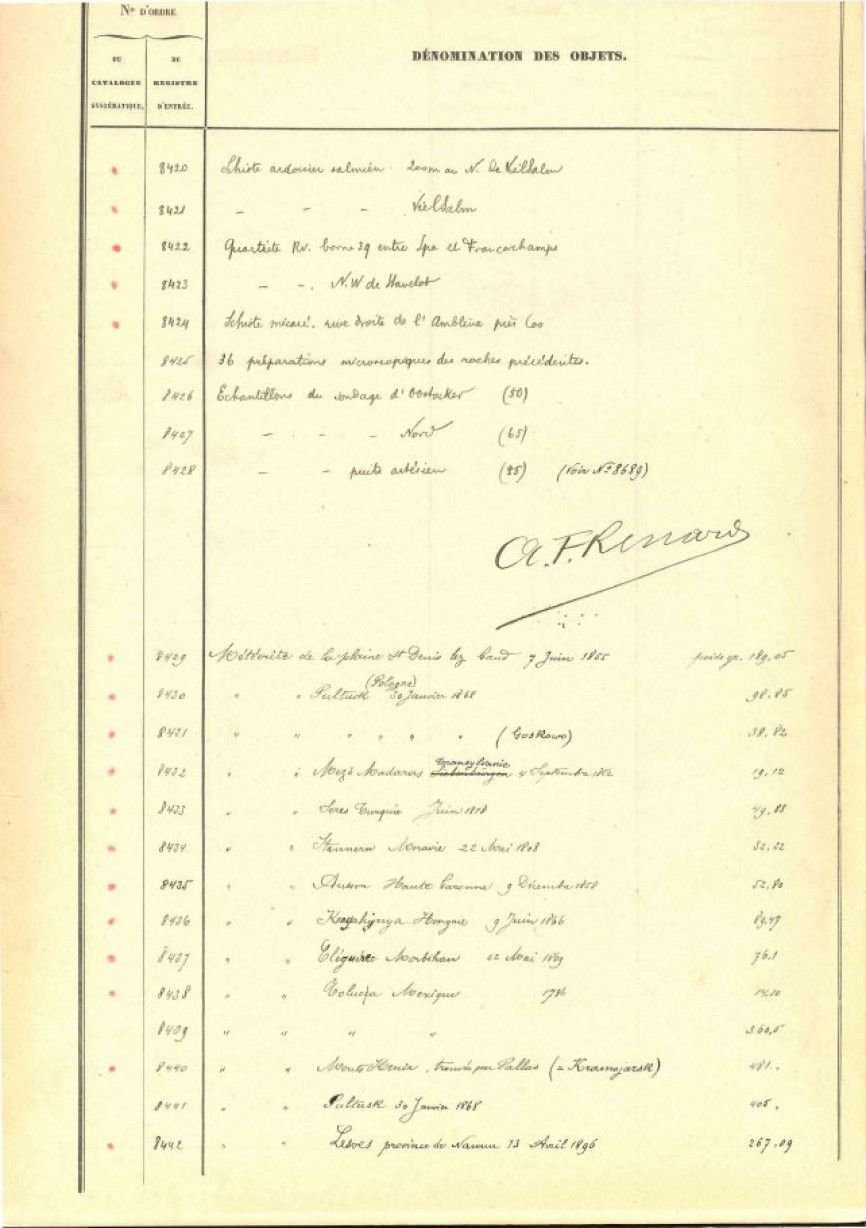 Nos D'ORDRE
DÉNOMINATION DES OBJETS.
DU CATALOGUE SYSTÉMATIQUE.
DU REGISTRE D'ENTRÉE.
8420 Schiste ardoisier salmien. 200m au N. de Vielsalm
8421 — — — Vielsalm
8422 Quartzite Rv. borne 39 entre Spa et Francorchamps
8423 — —. N.W de Havelot
8424 Schiste micacé. rive droite de l'Amblève près Coo
8425 36 préparations microscopiques des roches précédentes.
8426 Echantillons du sondage d'Oostacker (50)
8427 — — — Nord (65)
8428 — — puits artésien (25) (Voir No 8689)
A. F. Renard
8429 Météorite de la plaine St Denis lez Gand 7 Juin 1855 poids gr. 189,05
8430 " " Pultusk (Pologne) 30 Janvier 1868 98.85
8431 " " " " " " (Gostkowo) 38.82
8432 " " Mezö Madaras Transylvanie 4 Septembre 1852 19,12
8433 " " Seres Turquie Juin 1818 49.88
8434 " " Stannern Moravie 22 Mai 1808 32.22
8435 " " Ausson Haute Garonne 9 Décembre 1858 52,80
8436 " " Knyahynya Hongrie 9 Juin 1866 89.47
8437 " " Cléguérec Morbihan 22 Mai 1869 76.1
8438 " " Toluca Mexique 1786 14.10
8439 " " " " 360,5
8440 " " Monts Kenia, trouvée par Pallas (= Krasnojarsk) 481.
8441 " " Pultusk 30 Janvier 1868 405.
8442 " " Lesves province de Namur 13 Avril 1896 267.09